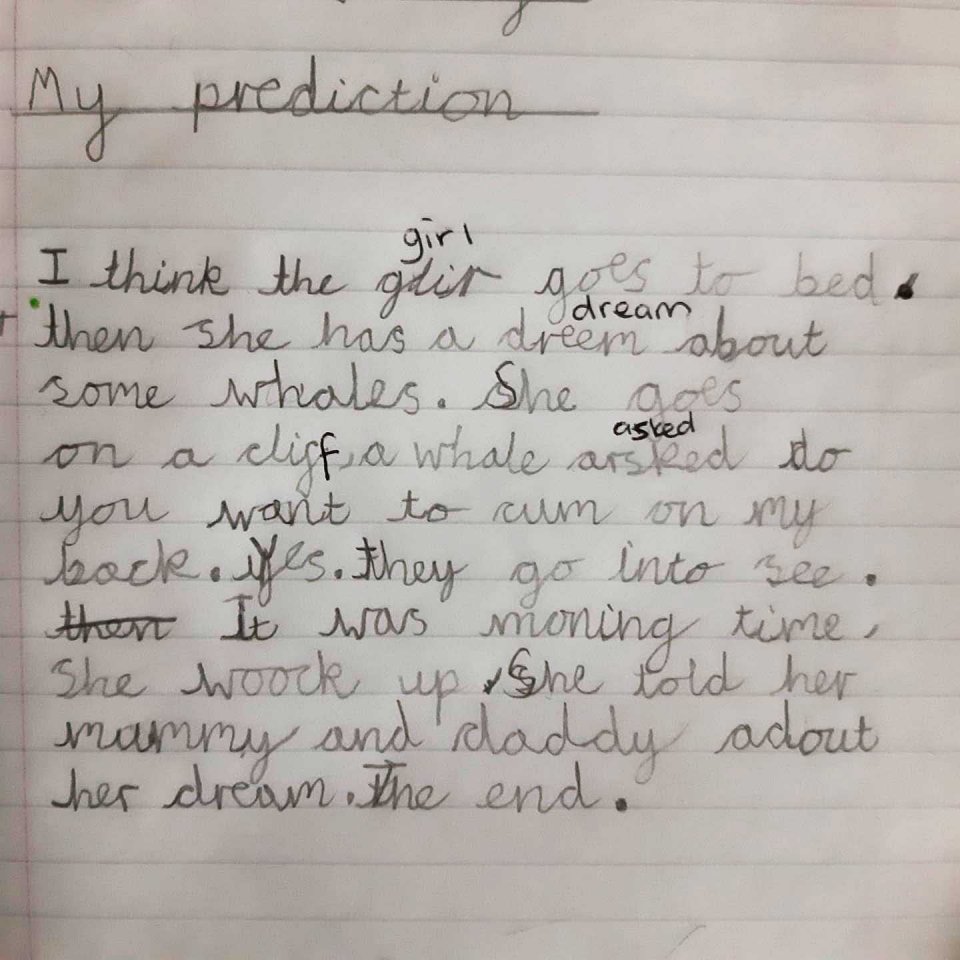 My prediction
girl
I think the glir goes to bed.
dream
then she has a dreem about
some whales. She goes
asked
on a cliff, a whale arsked do
you want to cum on my
back. Yes. they go into see.
then It was moning time,
She woock up. She told her
mummy and daddy adout
her dream. The end.